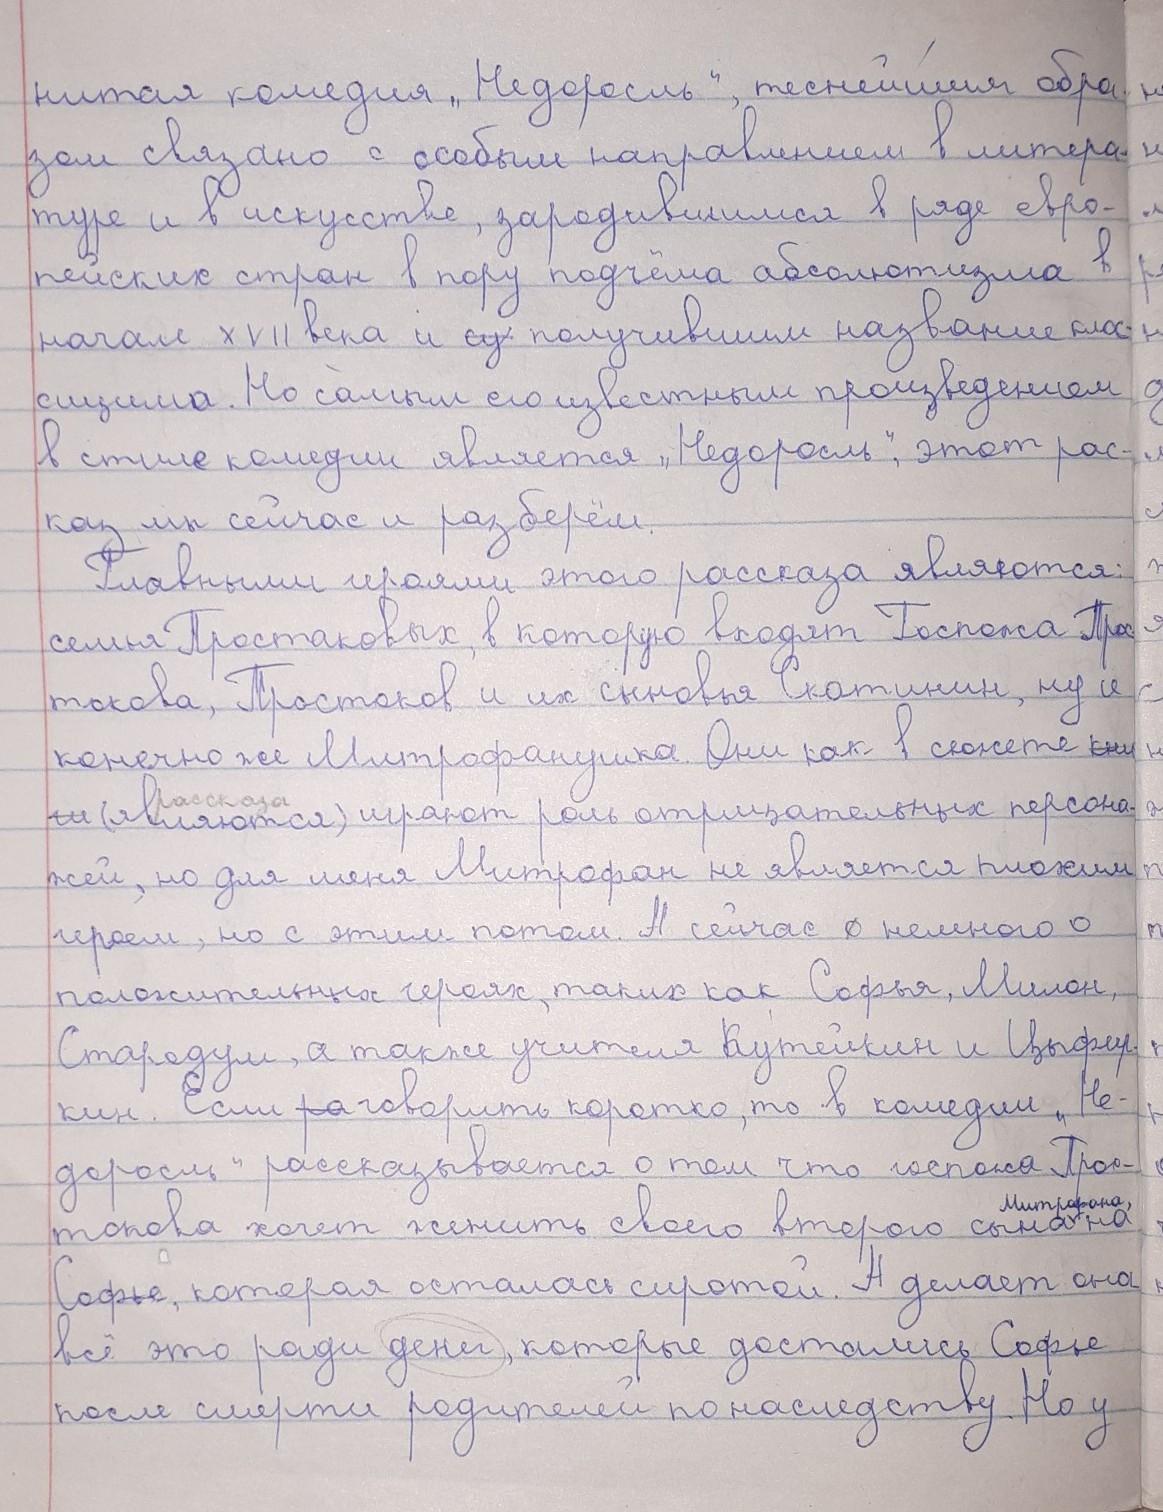 нитая комедия „Недоросль“, теснейшим обра-
зом связано с особым направлением в литера-
туре и в искусстве, зародившимся в ряде евро-
пейских стран в пору подъёма абсолютизма в
начале XVII века и получившим название клас-
сицима. Но самым его известным произведением
в стиле комедии является „Недоросль“, этот рас-
каз мы сейчас и разберём.
Главными героями этого рассказа являются:
семья Простаковых, в которую входят Госпожа Прос
такова, Простаков и их сыновья Скотинин, ну и
конечно же Митрофанушка. Они как в сюжете кни
ги (являются) рассказа играют роль отрицательных персона-
жей, но для меня Митрофан не является плохим
героем, но с этим потом. А сейчас о немного о
положительных героях, таких как Софья, Милон,
Стародум, а также учителя Кутейкин и Цыфир-
кин. Если раговорить коротко, то в комедии „Не-
доросль“ рассказывается о том что госпожа Прос-
такова хочет женить своего второго сына Митрофана, на
Софье, которая осталась сиротой. А делает она
всё это ради денег, которые достались Софье
после смерти родителей по наследству. Но у